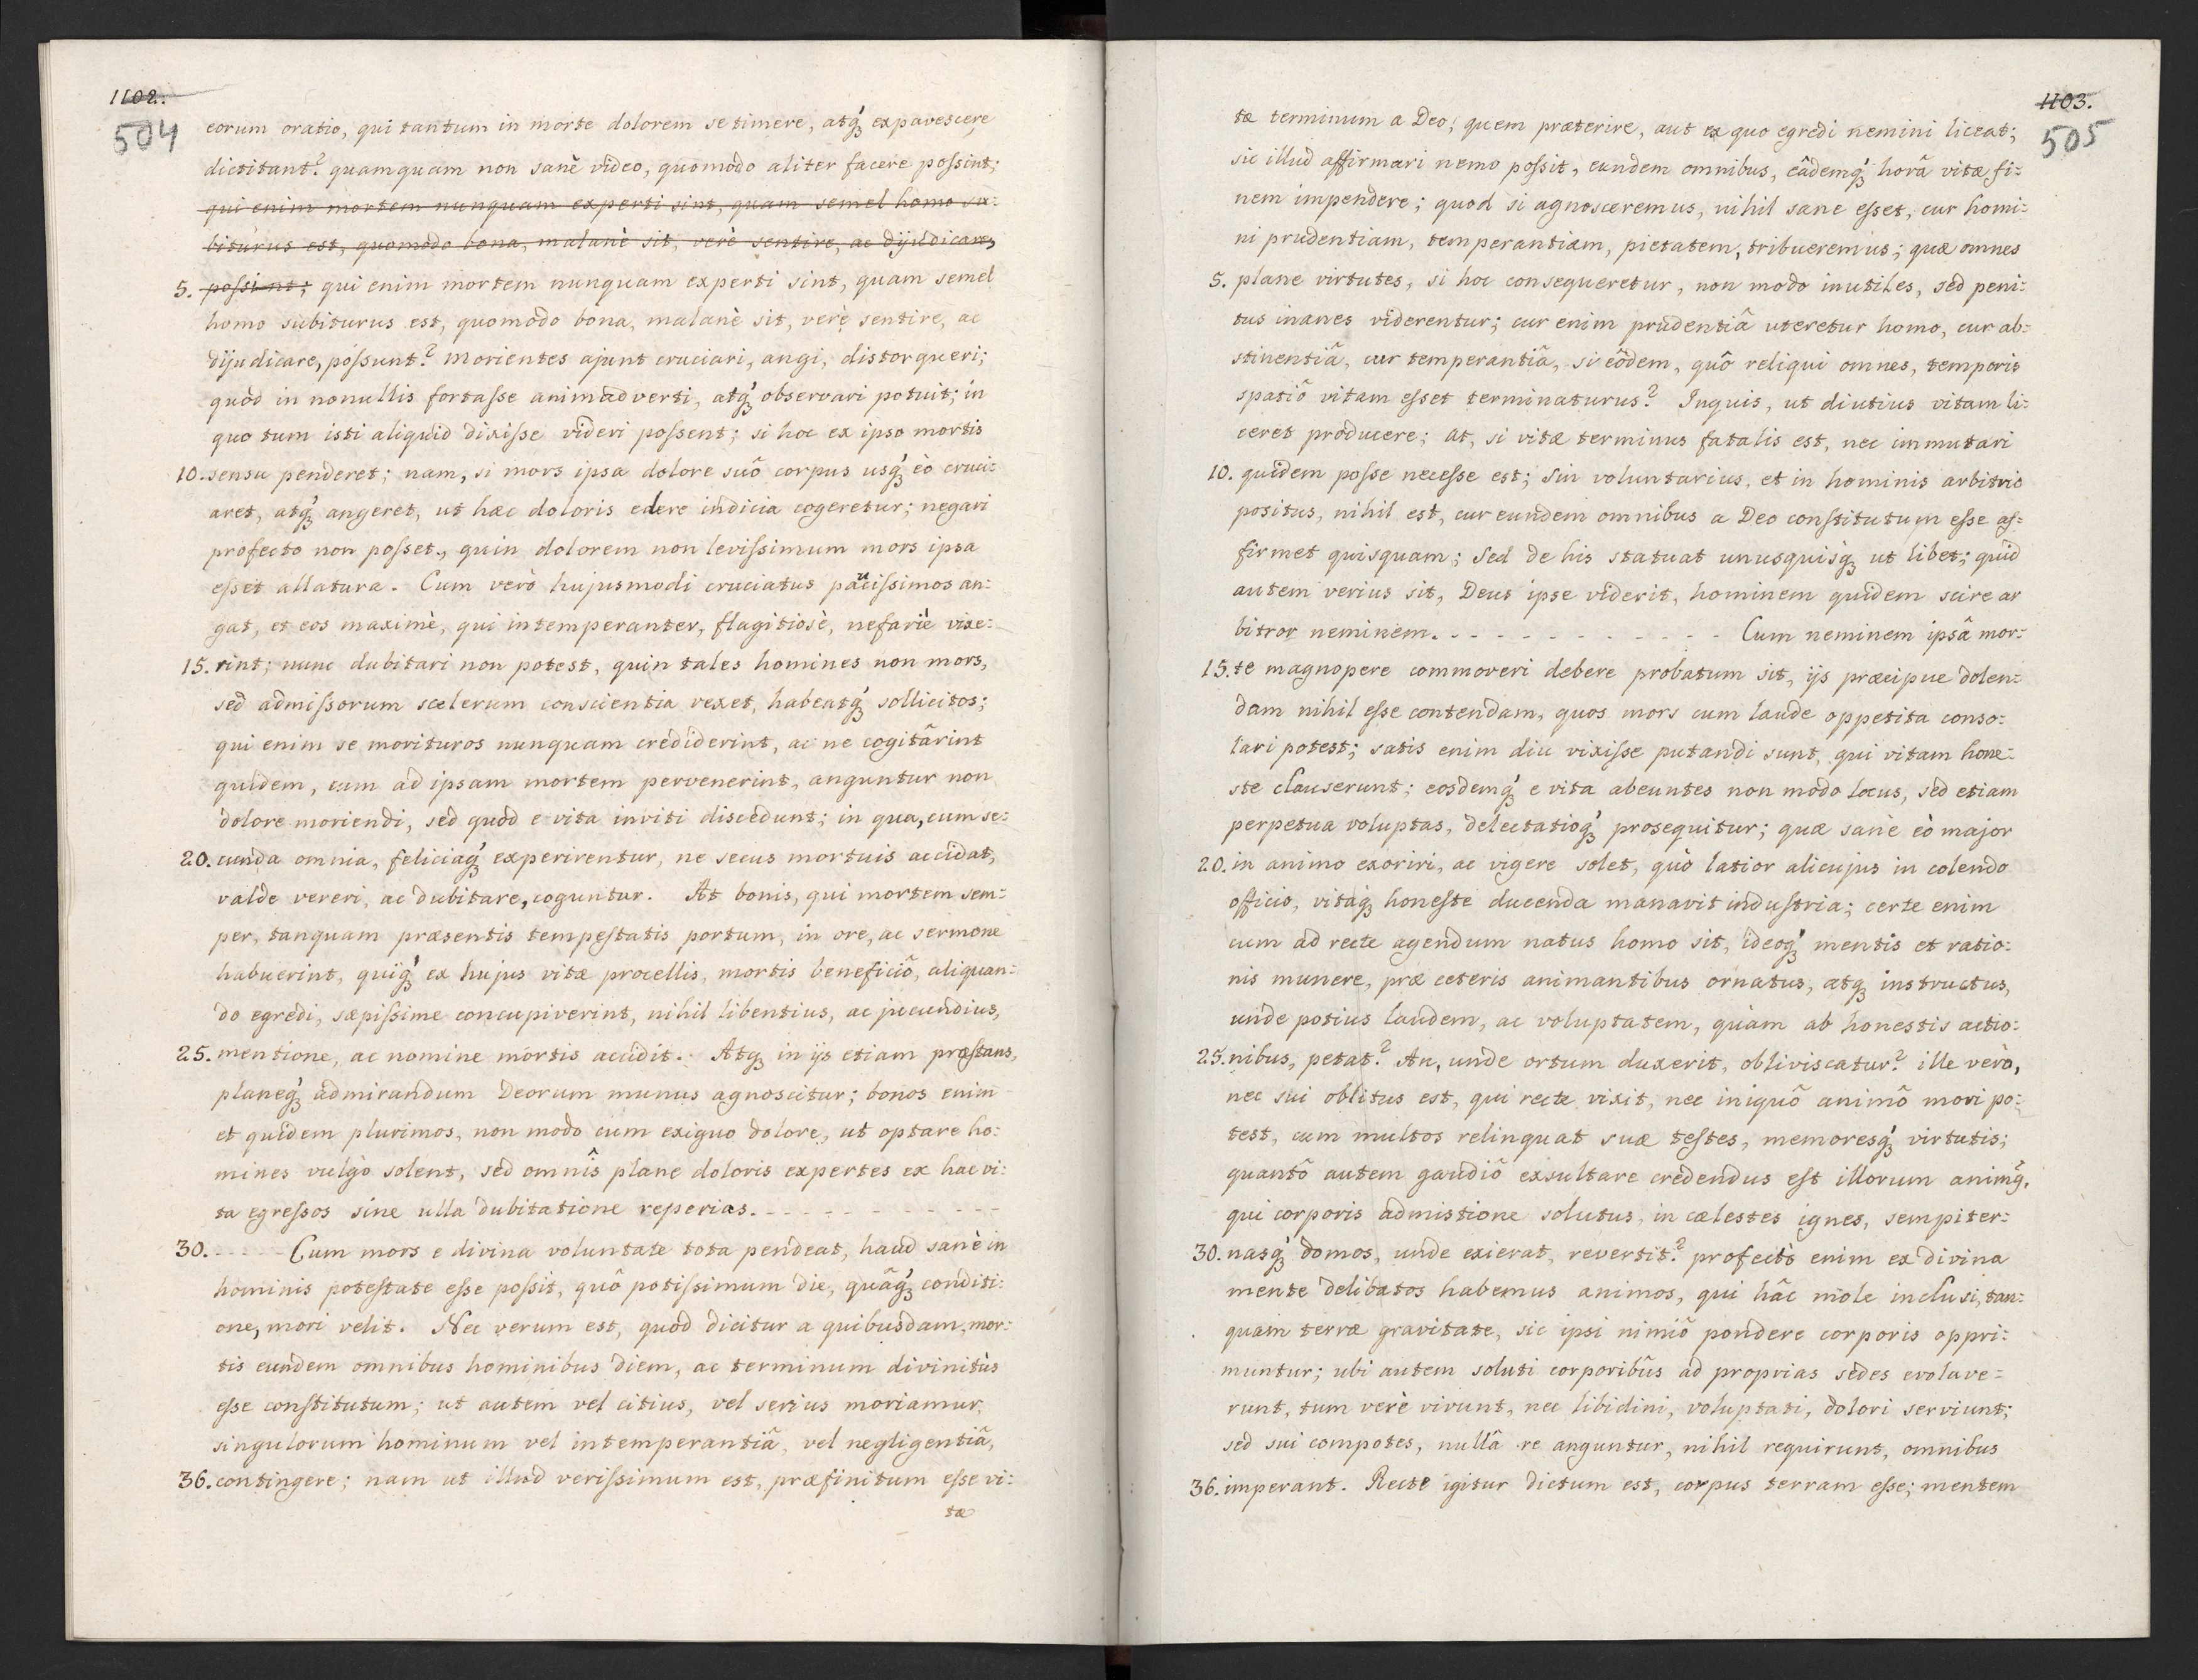 1102.
504
eorum oratio, qui tantum in morte dolorem se timere, atq́ꝫ expavescere
dictitant? quamquam non sanè video, quomodo aliter facere poſsint;
qui enim mortem nunquam experti sint, quam semel homo su:
biturus est, quomodo bona, malanè sit, verè sentire, ac dijudicare,
5. poſsint; qui enim mortem nunquam experti sint, quam semel
homo subiturus est, quomodo bona, malanè sit, verè sentire, ac
dijudicare, poſsunt? Morientes ajunt cruciari, angi, distorqueri;
quòd in nonullis fortaſse animadverti, atq́ꝫ observari potuit; in
quo tum isti aliquid dixiſse videri poſsent; si hoc ex ipso mortis
10. sensu penderet; nam, si mors ipsa dolore suô corpus usq́ꝫ eò cruci:
aret, atq́ꝫ angeret, ut hæc doloris edere indicia cogeretur; negari
profecto non poſset, quin dolorem non leviſsimum mors ipsa
eſset allatura. Cum verò hujusmodi cruciatus pauciſsimos an:
gat, et eos maximè, qui intemperanter, flagitiosè, nefariè vixe:
15. rint; nunc dubitari non potest, quin tales homines non mors,
sed admiſsorum scelerum conscientia vexet, habeatq́ꝫ sollicitos;
qui enim se morituros nunquam crediderint, ac ne cogitârint
quidem, cum ad ipsam mortem pervenerint, anguntur non
dolore moriendi, sed quòd e vita inviti discedunt; in qua, cum se:
20. cunda omnia, feliciaq́ꝫ experirentur, ne secus mortuis accidat,
valde vereri, ac dubitare, coguntur. At bonis, qui mortem sem:
per, tanquam præsentis tempeſtatis portum, in ore, ac sermone
habuerint, quiq́ꝫ ex hujus vitæ procellis, mortis beneficiô, aliquan:
do egredi, sæpiſsime concupiverint, nihil libentius, ac jucundius,
25. mentione, ac nomine mortis accidit. Atqꝫ in ijs etiam præſtans,
planeq́ꝫ admirandum Deorum munus agnoscitur; bonos enim
et quidem plurimos, non modo cum exiguo dolore, ut optare ho:
mines vulgò solent, sed omnîs plane doloris expertes ex hac vi:
ta egreſsos sine ulla dubitatione reperias. - - - - - - - - - - -
30. - - - - - Cum mors e divina voluntate tota pendeat, haud sanè in
hominis poteſtate eſse poſsit, quô potiſsimum die, quâq́ꝫ conditi:
one, mori velit. Nec verum est, quod dicitur a quibusdam, mor:
tis eundem omnibus hominibus diem, ac terminum divinitùs
eſse conſtitutum; ut autem vel citius, vel serius moriamur,
singulorum hominum vel intemperantiâ, vel negligentiâ,
36. contingere; nam ut illud veriſsimum est, præfinitum eſse vi:
tæ
1103.
505
tæ terminum a Deo; quem præterire, aut ex quo egredi nemini liceat;
sic illud affirmari nemo poſsit, eundem omnibus, eâdemq́ꝫ horâ vitæ fi:
nem impendere; quod si agnosceremus, nihil sane eſset, cur homi:
ni prudentiam, temperantiam, pietatem, tribueremus; quæ omnes
5. plane virtutes, si hoc consequeretur, non modo inutiles, sed peni:
tus inanes viderentur; cur enim prudentiâ uteretur homo, cur ab:
stinentiâ, cur temperantiâ, si eôdem, quô reliqui omnes, temporis
spatiô vitam eſset terminaturus? Inquis, ut diutius vitam li:
ceret producere; at, si vitæ terminus fatalis est, nec immutari
10. quidem poſse neceſse est; sin voluntarius, et in hominis arbitrio
positus, nihil est, cur eundem omnibus a Deo conſtitutum eſse af:
firmet quisquam; Sed de his statuat unusquisqꝫ ut libet; quid
autem verius sit, Deus ipse viderit, hominem quidem scire ar
bitror neminem. - - - - - - - - - - - Cum neminem ipsâ mor:
15. te magnopere commoveri debere probatum sit, ijs præcipue dolen:
dam nihil eſse contendam, quos mors cum laude oppetita conso:
lari potest; satis enim diu vixiſse putandi sunt, qui vitam hone:
ste clauserunt; eosdemq́ꝫ e vita abeuntes non modo locus, sed etiam
perpetua voluptas, delectatioq́ꝫ prosequitur; quæ sanè eò major
20. in animo exoriri, ac vigere solet, quò latior alicujus in colendo
officio, vitaqꝫ honeſte ducenda manavit induſtria; certe enim
cum ad recte agendum natus homo sit, ideoq́ꝫ mentis et ratio:
nis munere, præ ceteris animantibus ornatus, atqꝫ instructus,
unde potius laudem, ac voluptatem, quàm ab honestis actio:
25. nibus, petat? An, unde ortum duxerit, obliviscatur? ille verò,
nec sui oblitus est, qui recte vixit, nec iniquô animô mori po:
test, cum multos relinquat suæ teſtes, memoresq́ꝫ virtutis;
quantô autem gaudiô exsultare credendus eſt illorum animꝰ,
qui corporis admistione solutus, in cælestes ignes, sempiter:
30. nasq́ꝫ domos, unde exierat, revertit? profectò enim ex divina
mente delibatos habemus animos, qui hâc mole inclusi, tan:
quam terræ gravitate, sic ipsi nimiô pondere corporis oppri:
muntur; ubi autem soluti corporibûs ad proprias sedes evolave:
runt, tum verè vivunt, nec libidini, voluptati, dolori serviunt;
sed sui compotes, nullâ re anguntur, nihil requirunt, omnibus
36. imperant. Recte igitur dictum est, corpus terram eſse; mentem